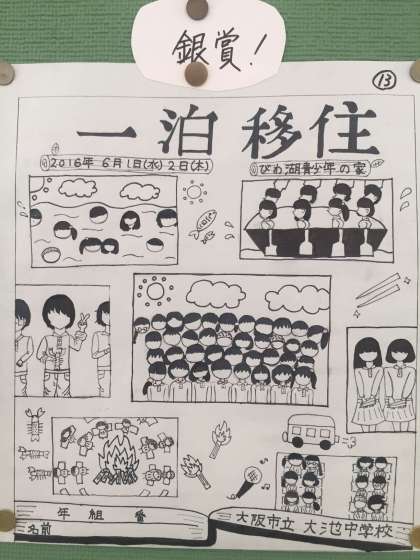 銀賞!
13
一泊移住
2016年 6月1日(水) 2日(木)
びわ湖青少年の家
年 組 番
名前
大阪市立 大池中学校